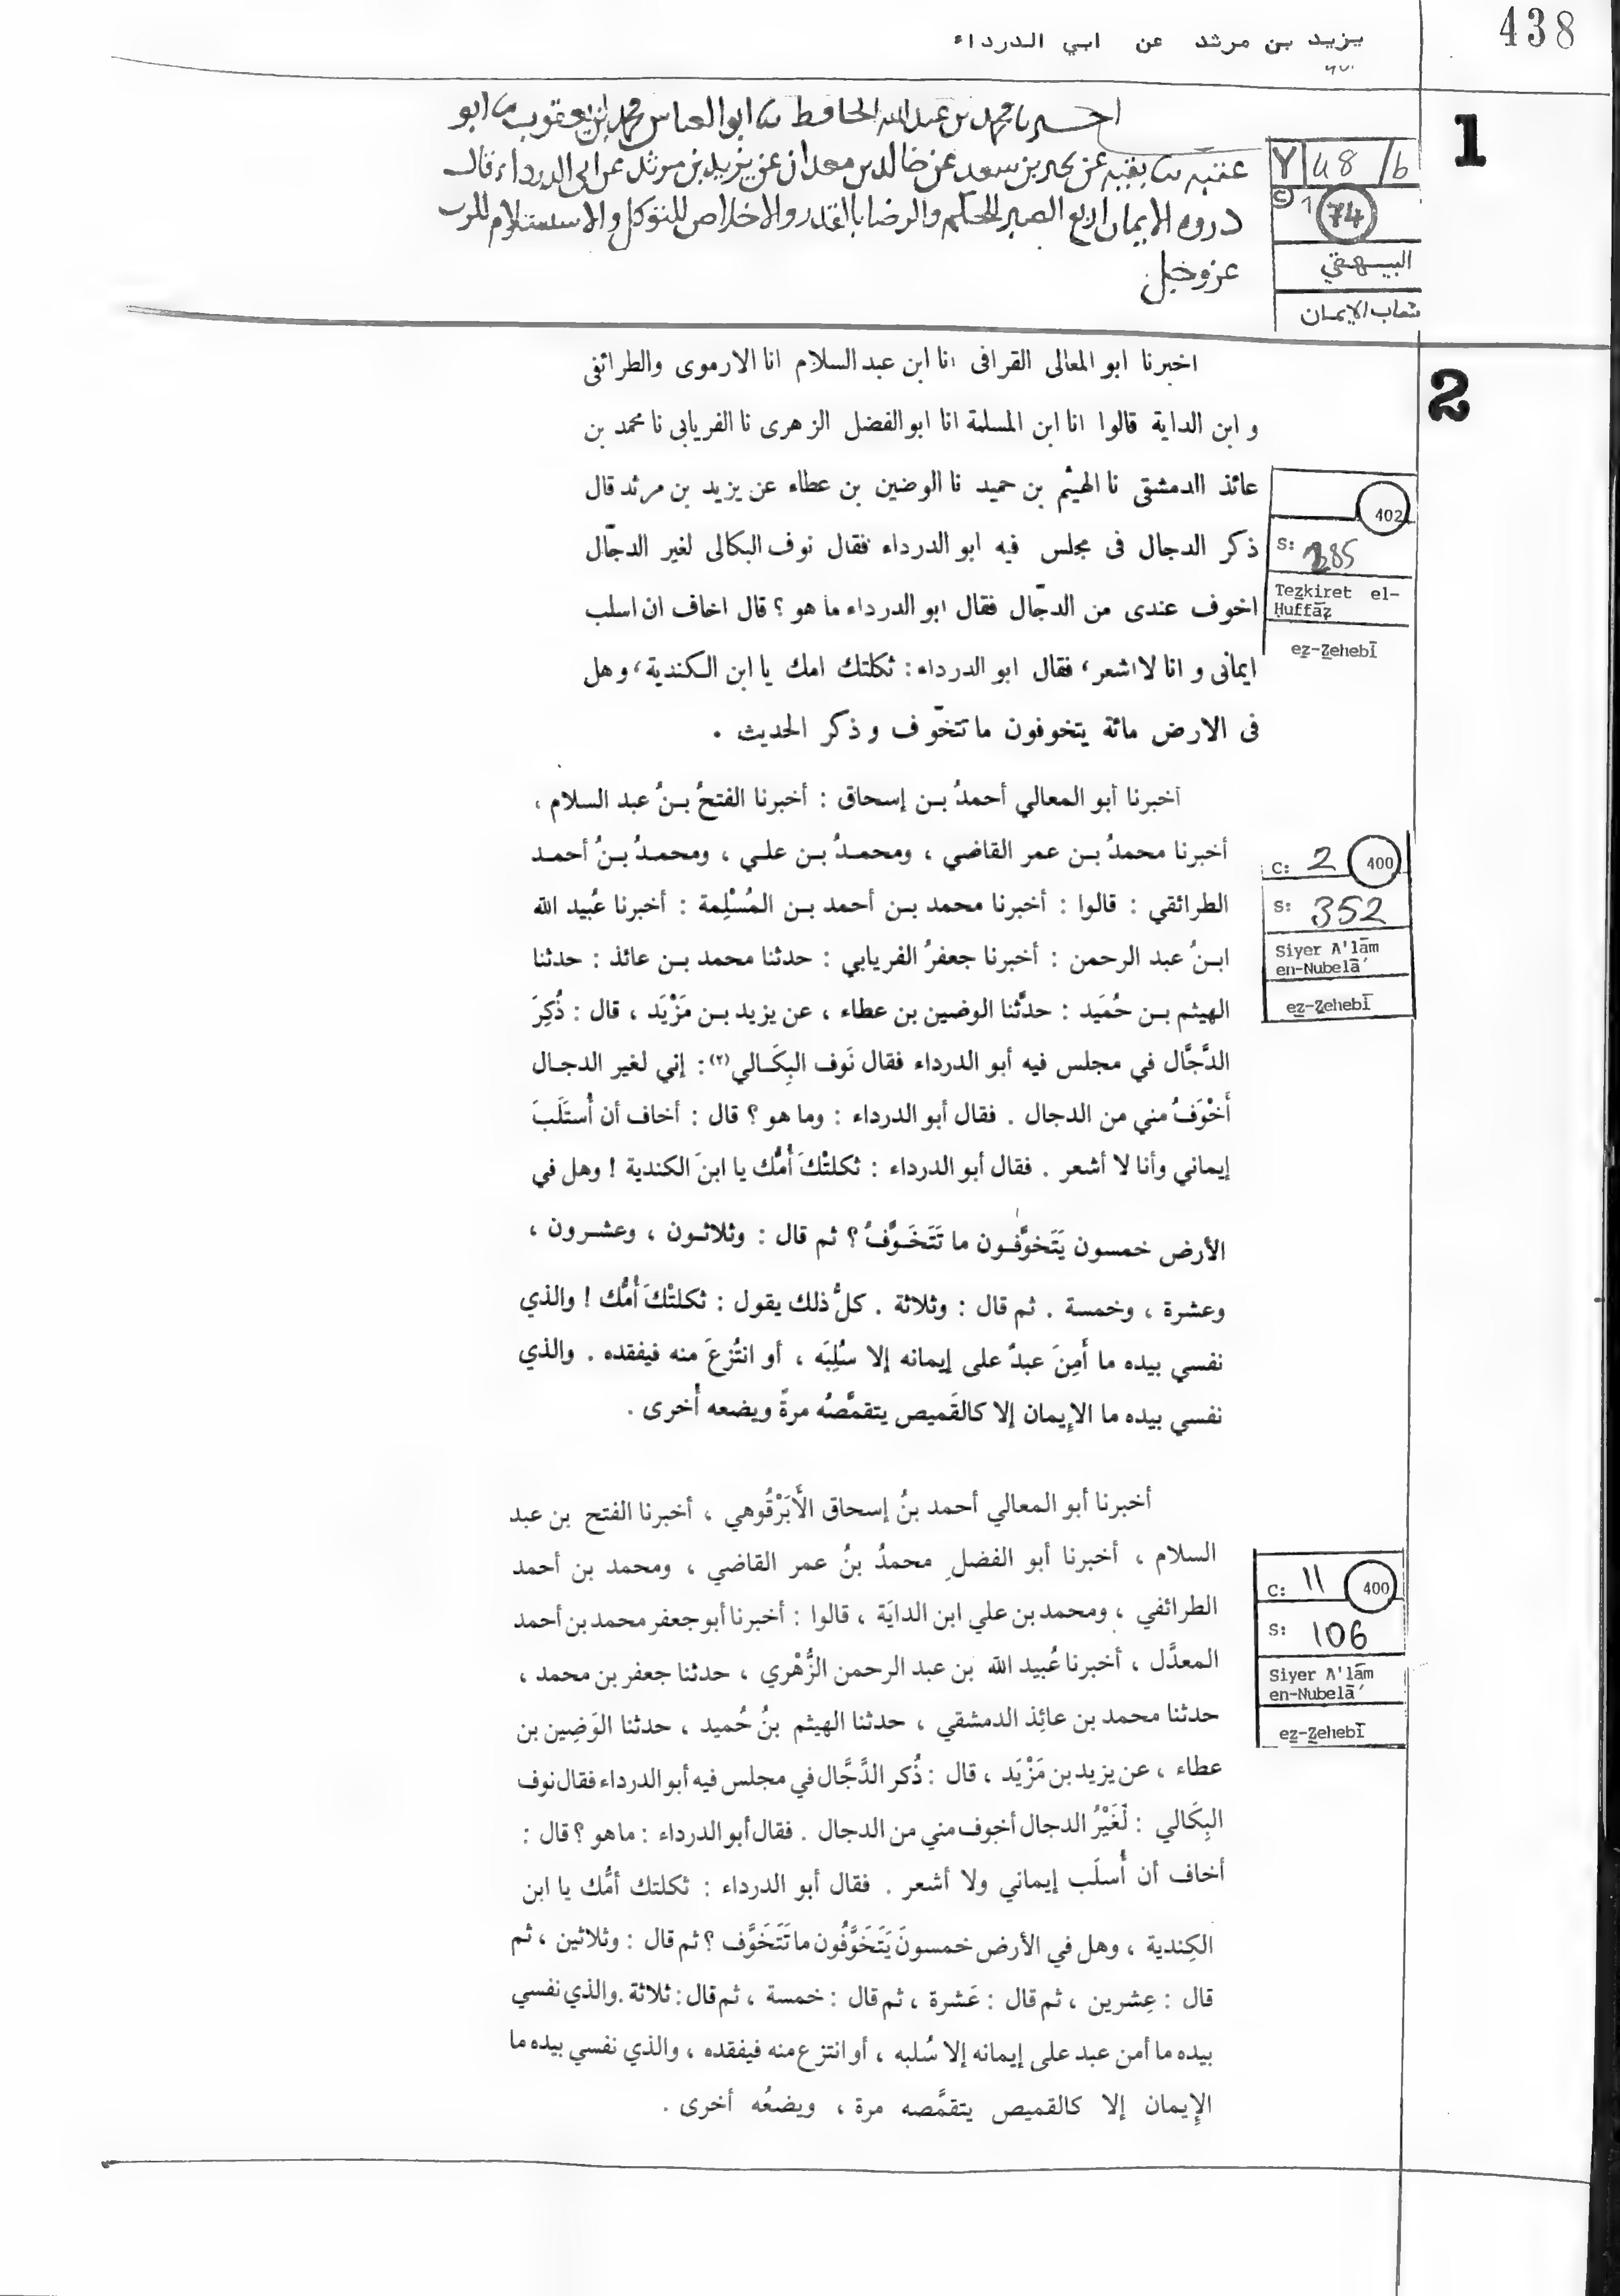 438
يزيد بن مرثد عن ابي الدرداء
1
اخبرنا محمد بن عبد الله الحافظ ثنا ابو العباس محمد بن يعقوب ثنا ابو
عتبه ثنا بقيه عن بحير بن سعد عن خالد بن معدان عن يزيد بن مرثد عن ابى الدرداء قال
ذروه الايمان اربع الصبر للحكم والرضا بالقدر والاخلاص للتوكل والاستسلام للرب
عز وجل
Y 48 /b
© 1 74
البيهقي
شعاب الايمان
2
اخبرنا ابو المعالى القرافى انا ابن عبد السلام انا الارموى والطرائفى
و ابن الداية قالوا انا ابن المسلمة انا ابو الفضل الزهرى نا الفريابى نا محمد بن
عائذ الدمشقى نا الهيثم بن حميد نا الوضين بن عطاء عن يزيد بن مرثد قال
ذكر الدجال فى مجلس فيه ابو الدرداء فقال نوف البكالى لغير الدجّال
اخوف عندى من الدجّال فقال ابو الدرداء ما هو ؟ قال اخاف ان اسلب
ايمانى و انا لا اشعر، فقال ابو الدرداء: ثكلتك امك يا ابن الكندية، وهل
فى الارض مائة يتخوفون ما تتخوّف و ذكر الحديث .
402
S: 385
Tezkiret el-
Ḥuffāẓ
ez-Zehebī
أخبرنا أبو المعالي أحمدُ بن إسحاق : أخبرنا الفتحُ بنُ عبد السلام ،
أخبرنا محمدُ بن عمر القاضي ، ومحمدُ بن علي ، ومحمدُ بنُ أحمد
الطرائفي : قالوا : أخبرنا محمد بن أحمد بن المُسْلِمة : أخبرنا عُبيد الله
ابنُ عبد الرحمن : أخبرنا جعفرُ الفريابي : حدثنا محمد بن عائذ : حدثنا
الهيثم بن حُمَيد : حدَّثنا الوضين بن عطاء ، عن يزيد بن مَزْيَد ، قال : ذُكِرَ
الدَّجَّال في مجلس فيه أبو الدرداء فقال نَوف البِكَالي(٢): إني لغير الدجال
أَخْوَفُ مني من الدجال . فقال أبو الدرداء : وما هو ؟ قال : أخاف أن أُستَلَبَ
إيماني وأنا لا أشعر . فقال أبو الدرداء : ثكلتْكَ أُمُّك يا ابنَ الكندية ! وهل في
الأرض خمسون يَتَخوَّفون ما تَتَخَوَّفُ ؟ ثم قال : وثلاثون ، وعشرون ،
وعشرة ، وخمسة . ثم قال : وثلاثة . كلُّ ذلك يقول : ثكلتْكَ أُمُّك ! والذي
نفسي بيده ما أَمِنَ عبدٌ على إيمانه إلا سُلِبَه ، أو انتُزعَ منه فيفقده . والذي
نفسي بيده ما الإيمان إلا كالقَميص يتقمَّصُه مرةً ويضعه أخرى .
C: 2 400
S: 352
Siyer A'lām
en-Nubelā'
ez-Zehebī
أخبرنا أبو المعالي أحمد بنُ إسحاق الأَبَرْقُوهي ، أخبرنا الفتح بن عبد
السلام ، أخبرنا أبو الفضل محمدُ بنُ عمر القاضي ، ومحمد بن أحمد
الطرائفي ، ومحمد بن علي ابن الدايَة ، قالوا : أخبرنا أبو جعفر محمد بن أحمد
المعدَّل ، أخبرنا عُبيد الله بن عبد الرحمن الزُّهْري ، حدثنا جعفر بن محمد ،
حدثنا محمد بن عائِذ الدمشقي ، حدثنا الهيثم بنُ حُميد ، حدثنا الوَضِين بن
عطاء ، عن يزيد بن مَزْيَد ، قال : ذُكر الدَّجَّال في مجلس فيه أبو الدرداء فقال نوف
البِكَالي : لَغَيْرُ الدجال أخوف مني من الدجال . فقال أبو الدرداء : ما هو ؟ قال :
أخاف أن أُسلَب إيماني ولا أشعر . فقال أبو الدرداء : ثكلتك أمُّك يا ابن
الكِندية ، وهل في الأرض خمسونَ يَتَخَوَّفُون ما تَتَخَوَّف ؟ ثم قال : وثلاثين ، ثم
قال : عِشرين ، ثم قال : عَشرة ، ثم قال : خمسة ، ثم قال : ثلاثة . والذي نفسي
بيده ما أمن عبد على إيمانه إلا سُلبه ، أو انتزع منه فيفقده ، والذي نفسي بيده ما
الإِيمان إلا كالقميص يتقمَّصه مرة ، ويضعُه أخرى .
C: 11 400
S: 106
Siyer A'lām
en-Nubelā'
ez-Zehebī